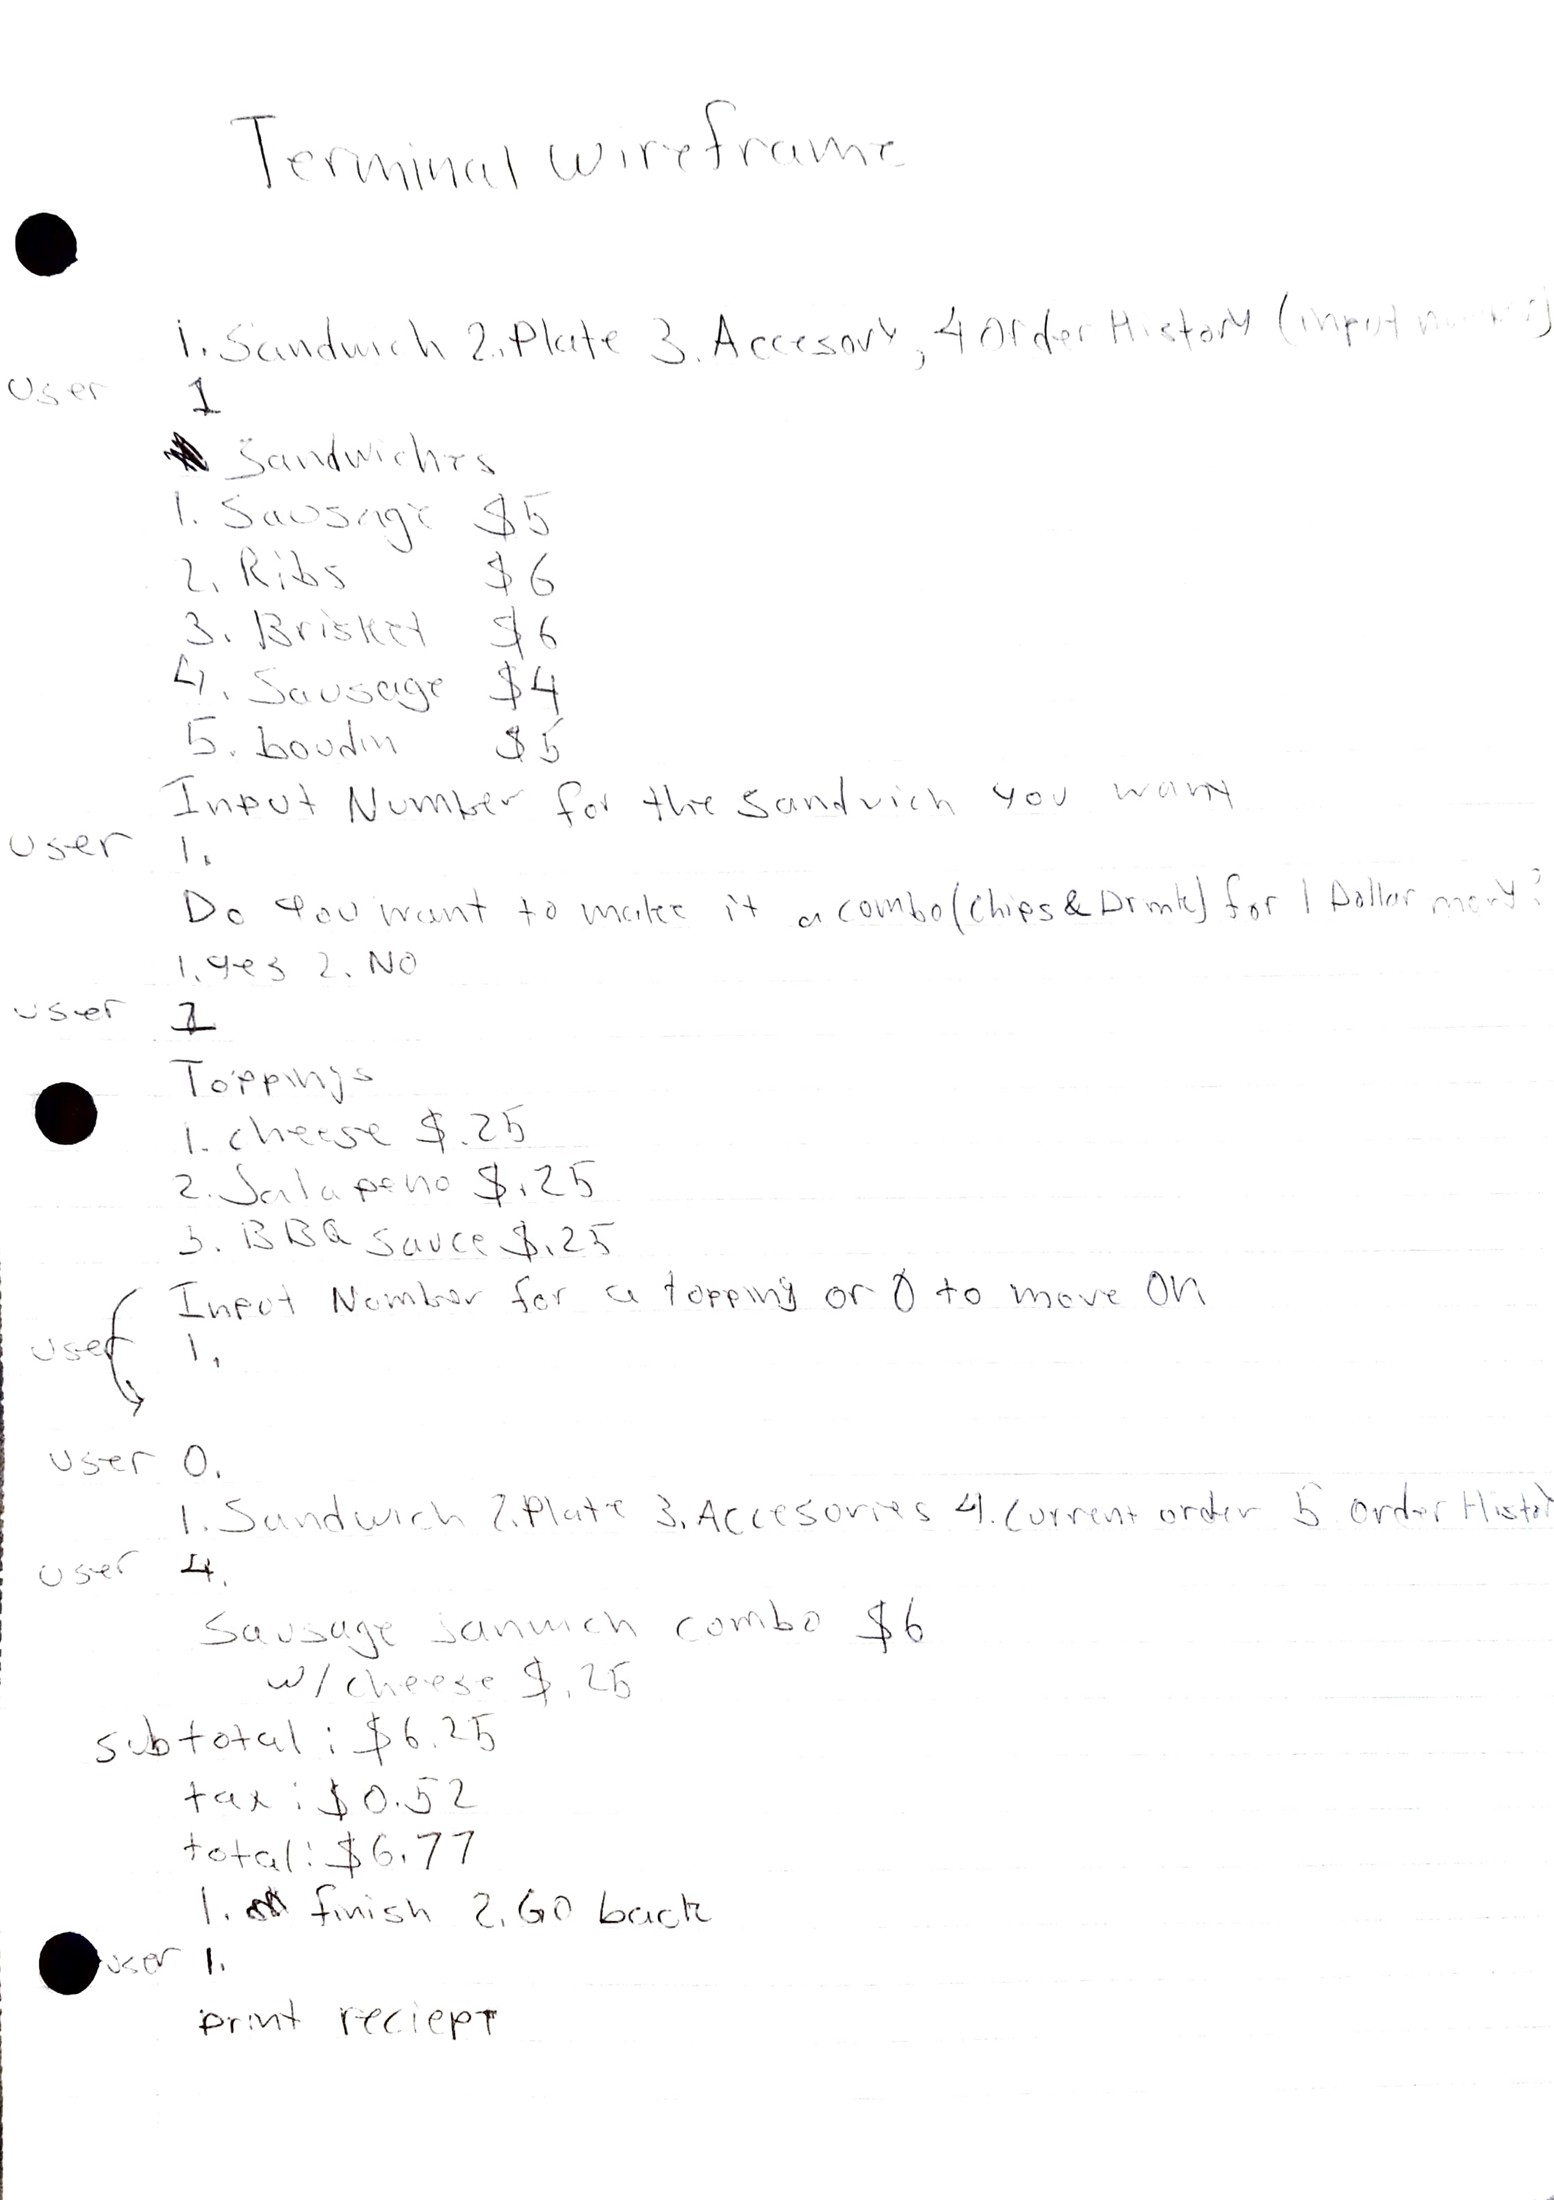 Terminal wireframe
1. Sandwich 2. Plate 3. Accesory, 4 Order History (input
user 1
Sandwiches
1. Sausage $5
2. Ribs $6
3. Brisket $6
4. Sausage $4
5. boudin $5
Input Number for the sandwich you want
user 1.
Do you want to make it a combo (Chips & Drink) for 1 Dollar more?
1. yes 2. NO
user 1
Toppings
1. cheese $.25
2. Jalapeno $.25
3. BBQ sauce $.25
Input Number for a topping or 0 to move on
user 1.
user 0.
1. Sandwich 2. Plate 3. Accesories 4. Current order 5 Order Histor
user 4.
Sausage sanwich combo $6
w/ cheese $.25
subtotal: $6.25
tax: $0.52
total: $6.77
1. finish 2. Go back
user 1.
print reciept